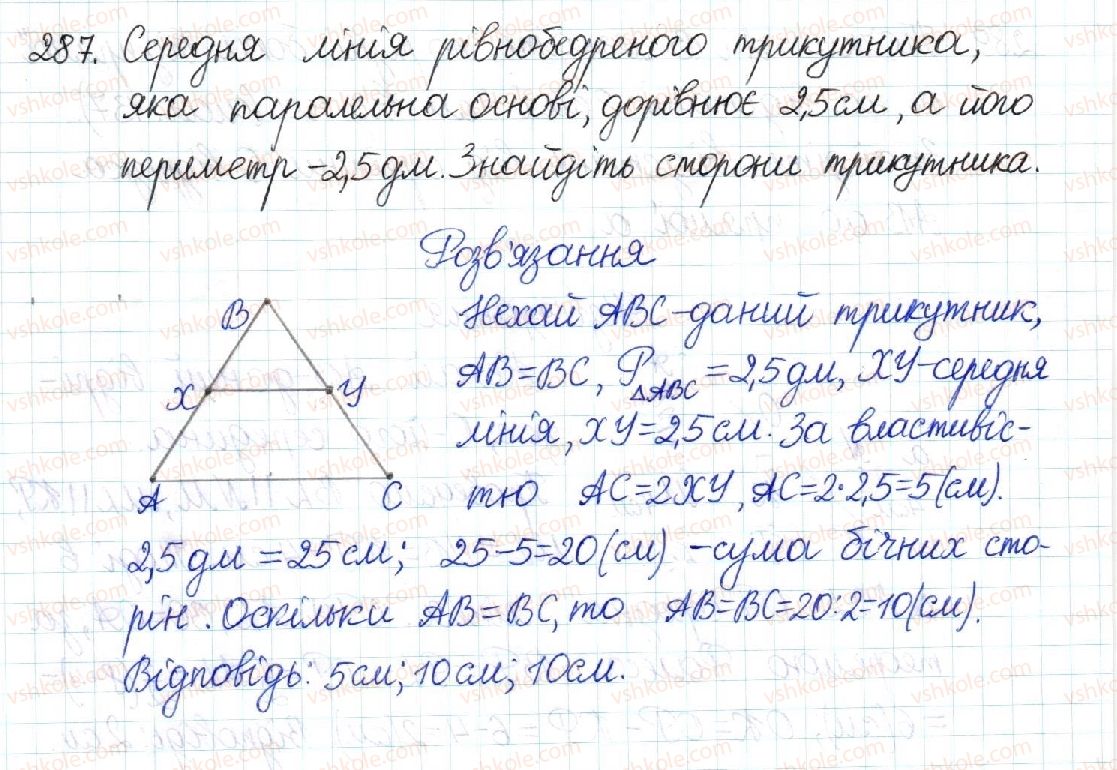 287. Середня лінія рівнобедреного трикутника,
яка паралельна основі, дорівнює 2,5 см, а його
периметр – 2,5 дм. Знайдіть сторони трикутника.
Розв'язання
B
X
У
A
C
Нехай ABC – даний трикутник,
AB = BC, P△ABC = 2,5 дм, ХУ – середня
лінія, ХУ = 2,5 см. За властивіс-
тю AC = 2ХУ, AC = 2·2,5 = 5 (см).
2,5 дм = 25 см; 25 – 5 = 20 (см) – сума бічних сто-
рін. Оскільки AB = BC, то AB = BC = 20 : 2 = 10 (см).
Відповідь: 5 см; 10 см; 10 см.